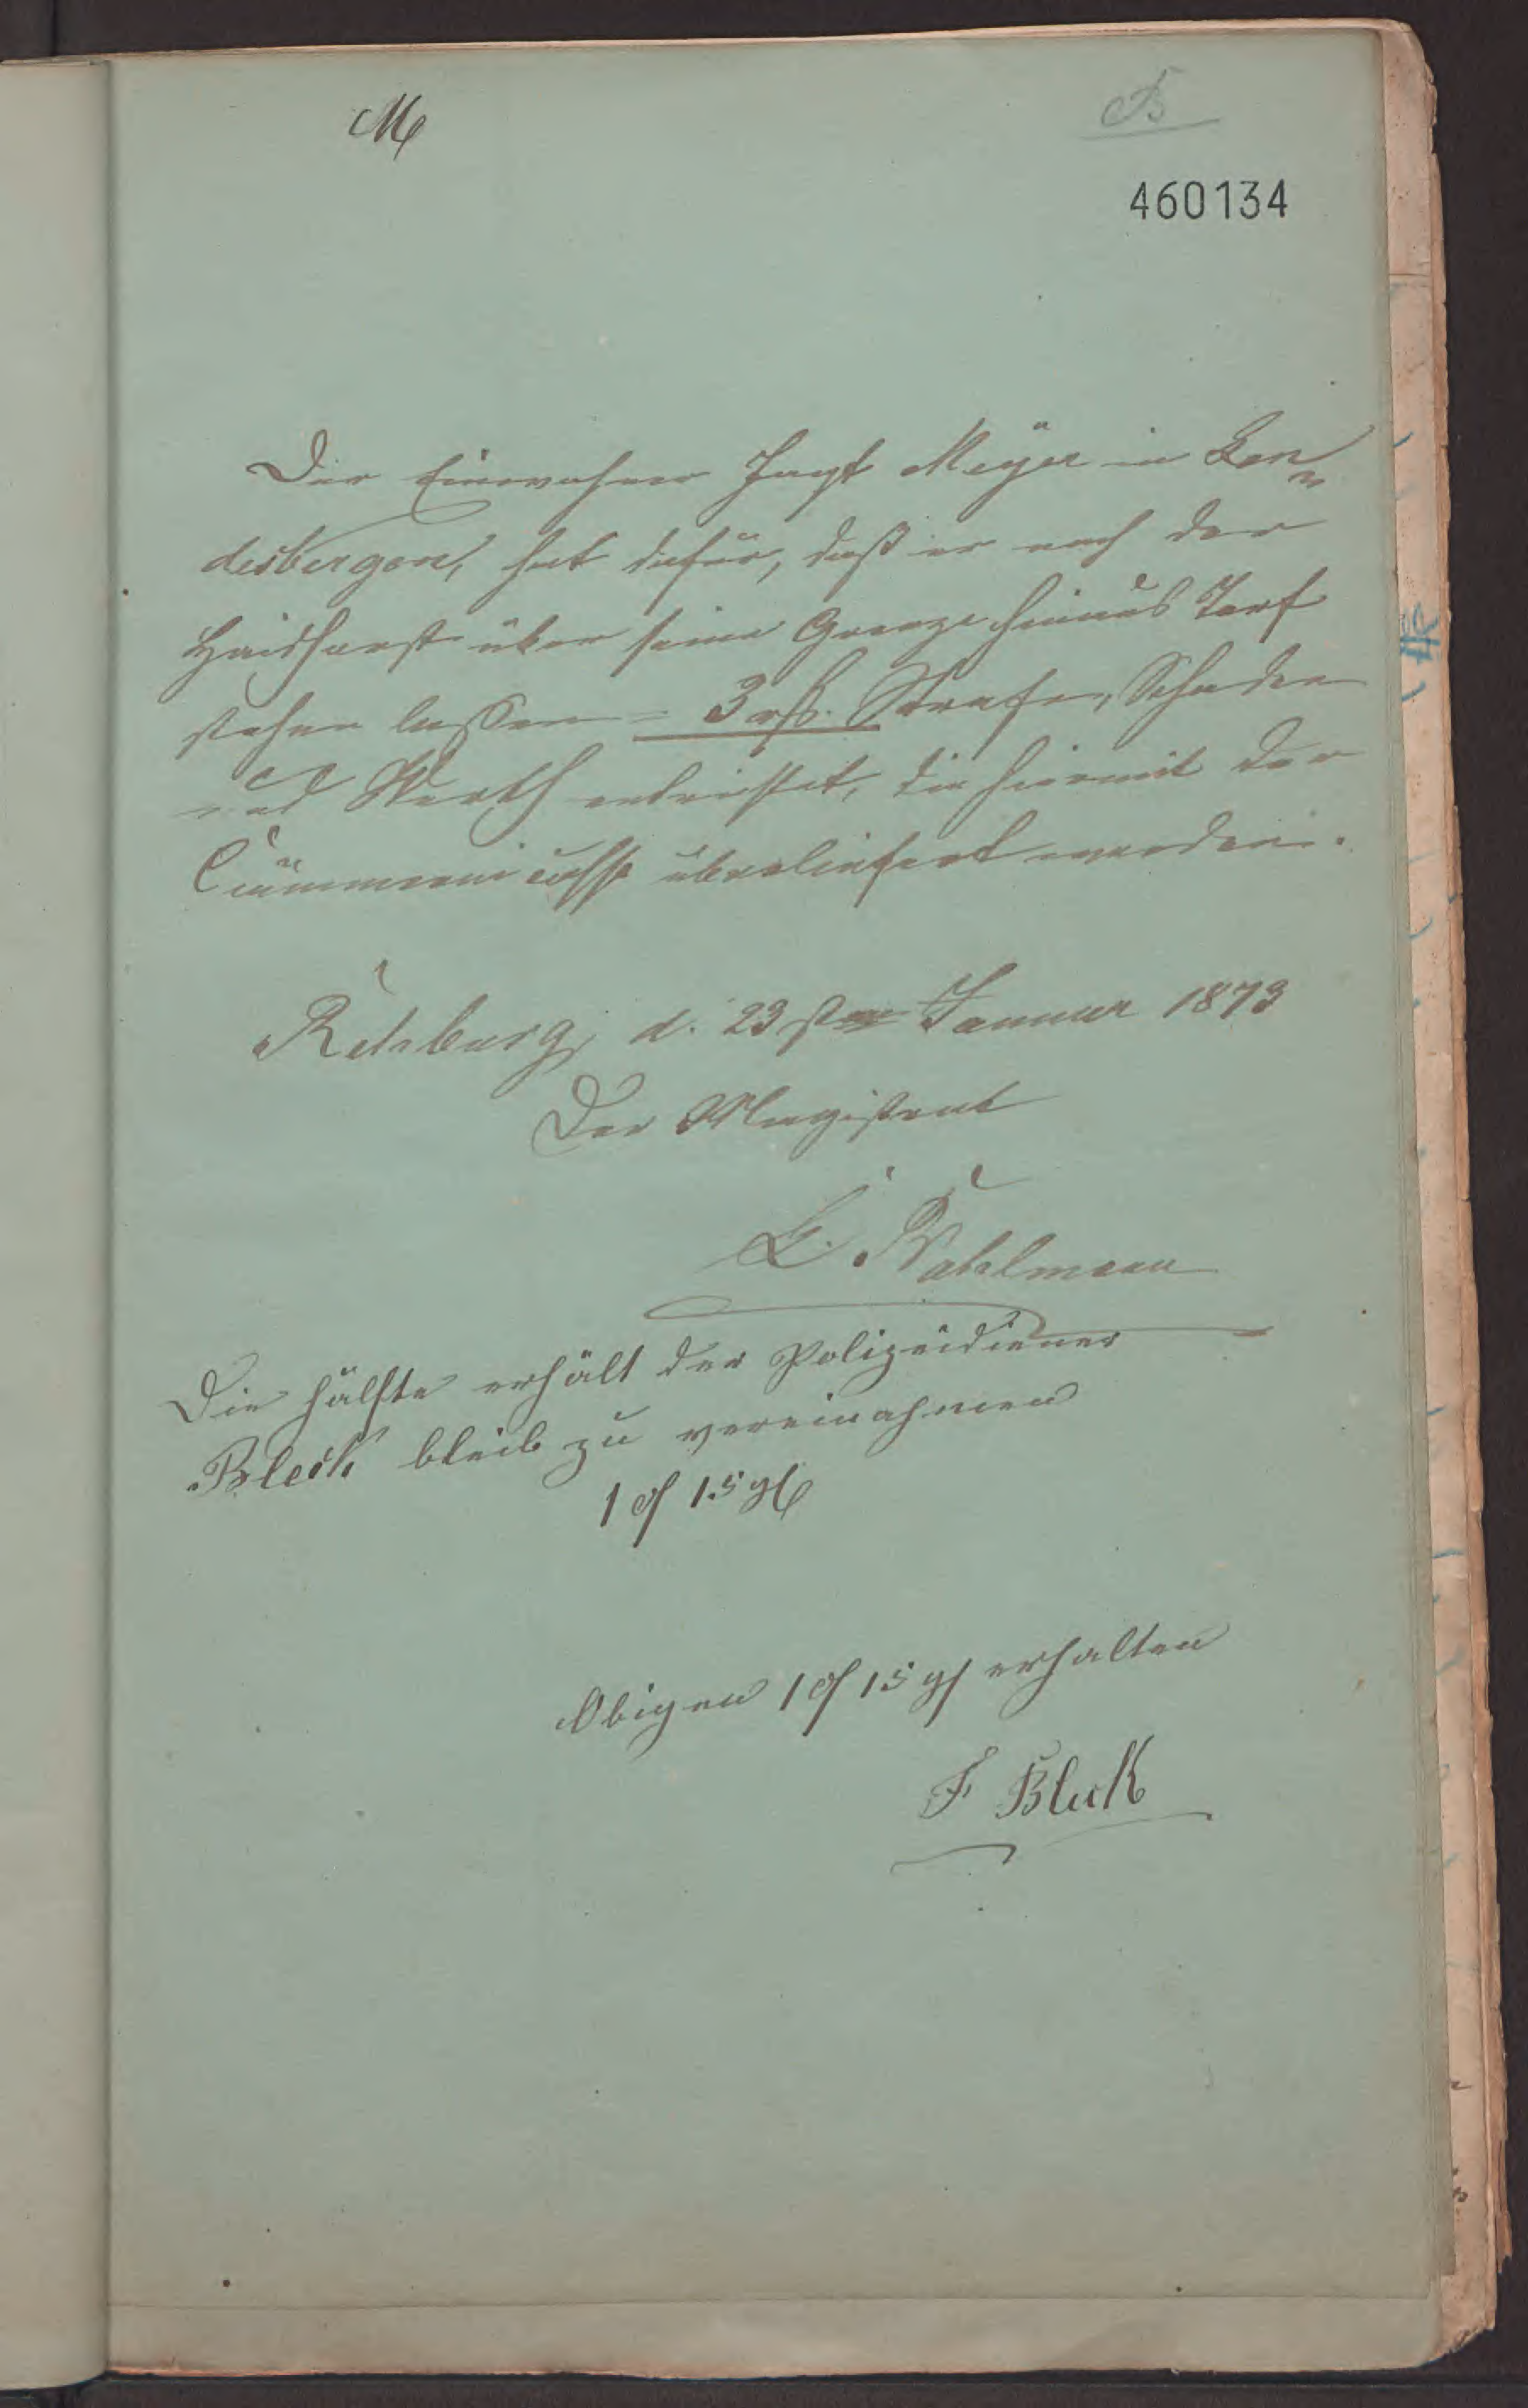 M
B
460134
Der Einwohner Jagt Meÿer in Lan
desbergen, hat dafür, daß er nach der
Haidhorst über seine Grenze hinaus Torf
stehen lassen = 3 rß. Strafe, Schaden
und Werth entrichtet, die hiermit der
Cämmereicasse überliefert werden.
Rehburg, d. 23sten Januar 1873
Der Magistrat
E. Wahlmann
Die hälfte erhält der Polizeidiener
Bleck bleib zu vereinahmen
1 rf 15 gl
Obigen 1 rf 15 gl erhalten
F Bleck